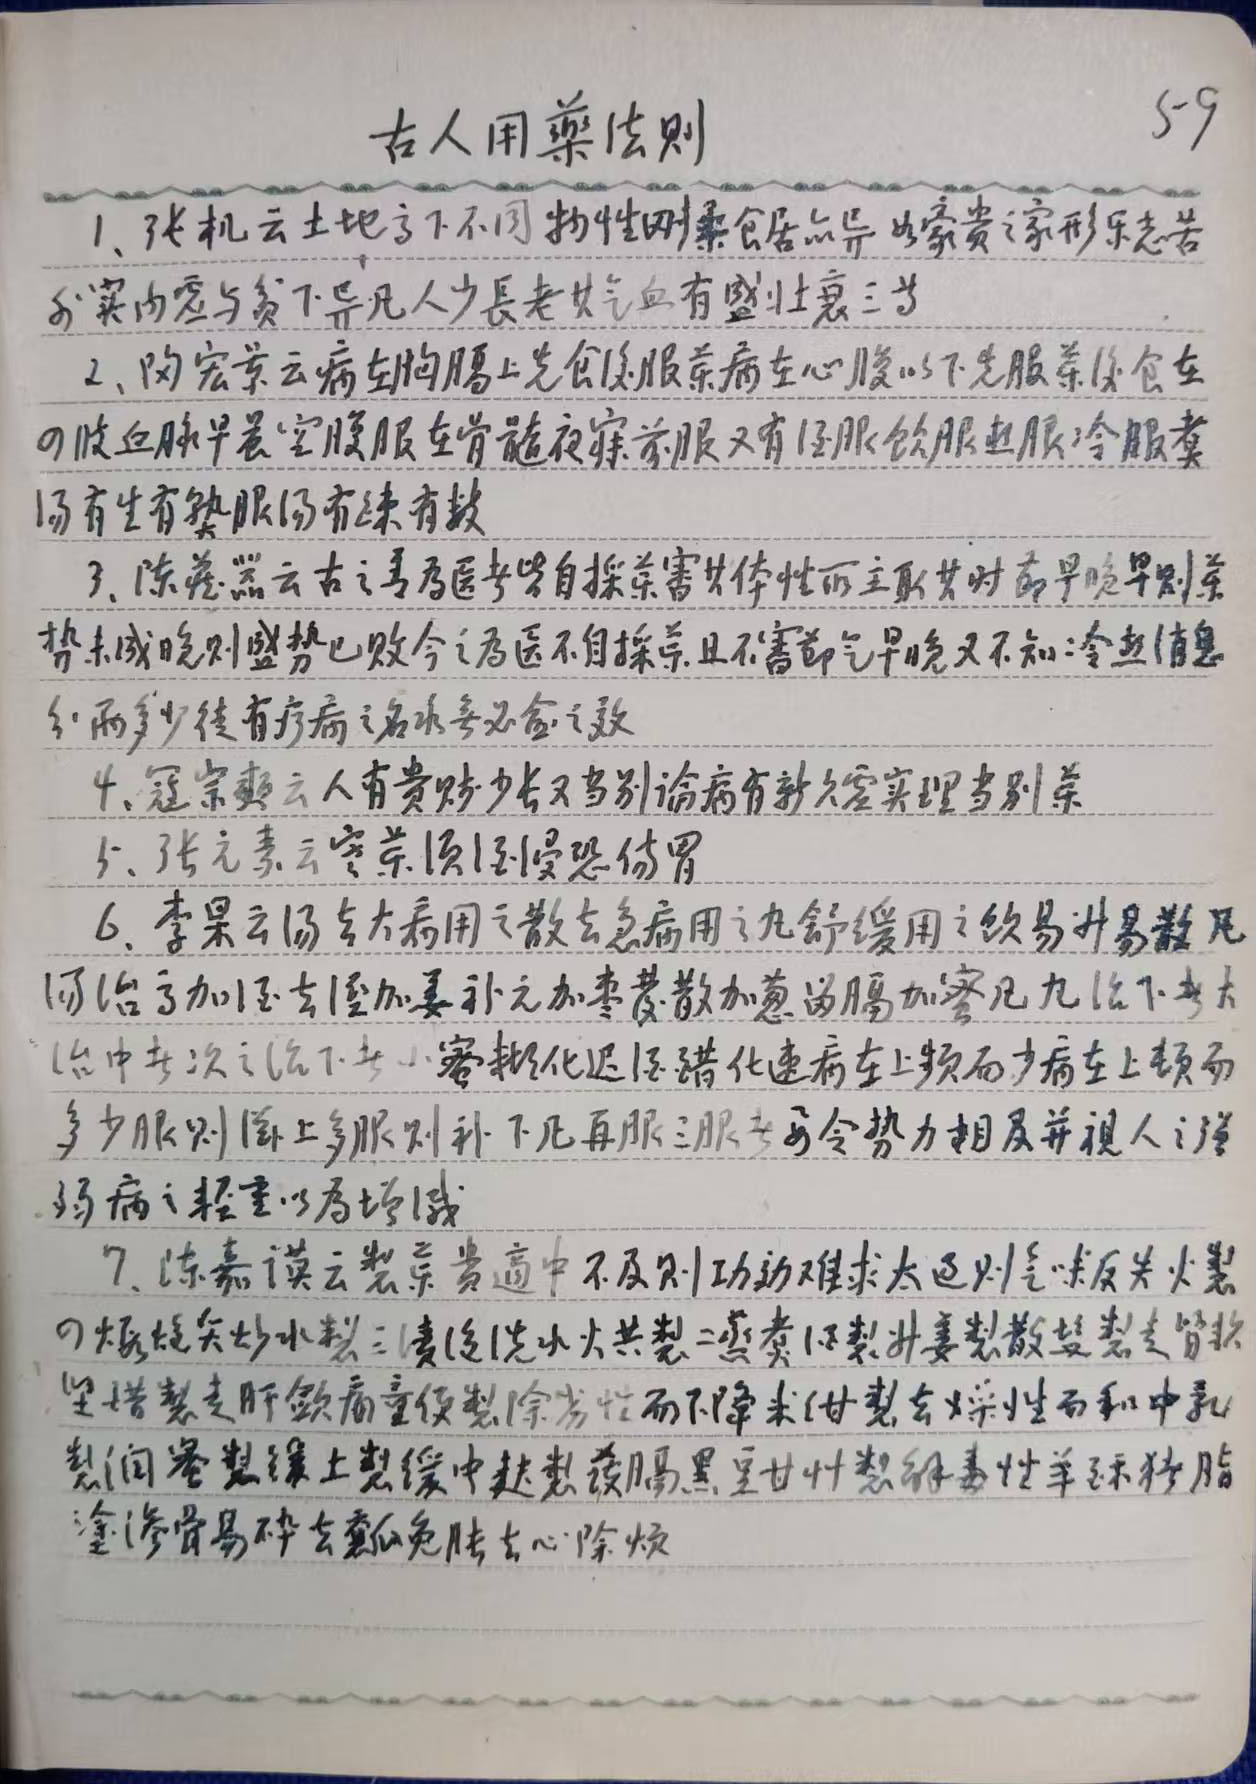 5-9
古人用藥法则
1、张机云土地高下不同物性刚柔食居亦异如豪贵之家形乐志苦
外实内虚与贫下异凡人少長老其气血有盛壮衰三等
2、陶宏景云病在胸膈上先食後服药病在心腹以下先服药後食在
四肢血脉早晨空腹服在骨髓夜寐前服又有酒服飲服热服冷服煮
汤有生有熟服汤有疎有数
3、陈藏器云古之善为医者皆自採药審其体性所主取其时节早晚早则药
势未成晚则盛势已败今之为医不自採药且不審节气早晚又不知冷热消息
分兩多少徒有疗病之名永无必愈之效
4、寇宗奭云人有貴贱少长又当别論病有新久虚实理当别药
5、张元素云寒药须酒浸恐伤胃
6、李杲云汤去大病用之散去急病用之丸舒缓用之飲易升易散凡
汤治高加酒去湿加姜补元加枣發散加葱留膈加蜜凡丸治下者大
治中者次之治下者小蜜糊化迟酒醋化速病在上頻而少病在上頻而
多少服则滋上多服则补下凡再服三服者要令势力相及并視人之强
弱病之軽重以为增減
7、陈嘉谟云製药贵適中不及则功効难求太过则气味反失火製
四煅炮炙炒水製三漬泡洗水火共製二蒸煮酒製升姜製散盐製走腎软
坚醋製走肝歛痛童便製除劣性而下降米泔製去燥性而和中乳
製润蜜製缓土製缓中麸製護膈黑豆甘艸製解毒性羊酥猪脂
塗渗骨易碎去瓤免胀去心除烦